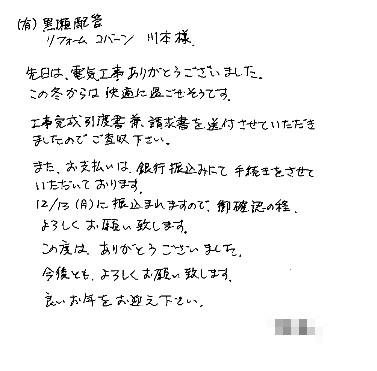 (有)黒瀬配管
リフォーム コバーン 川本様.
先日は、電気工事ありがとうございました。
この冬からは快適に過ごせそうです。
工事完成引度書兼、請求書を送付させていただき
ましたのでご査収下さい。
また、お支払いは、銀行振込みにて手続きをさせて
いただいております。
12/13(月)に振込まれますので、御確認の程、
よろしくお願い致します。
この度は、ありがとうございました。
今後とも、よろしくお願い致します。
良いお年をお迎え下さい。